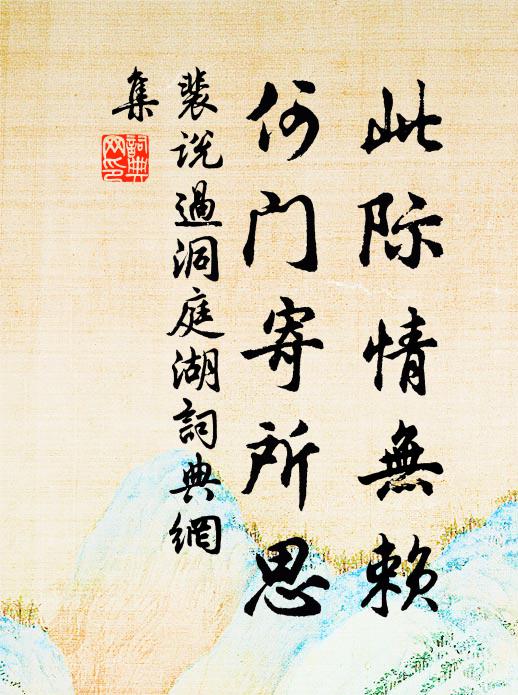 此际情無赖
何门寄所思
裴说過洞庭湖詞典網
集
詞典網印